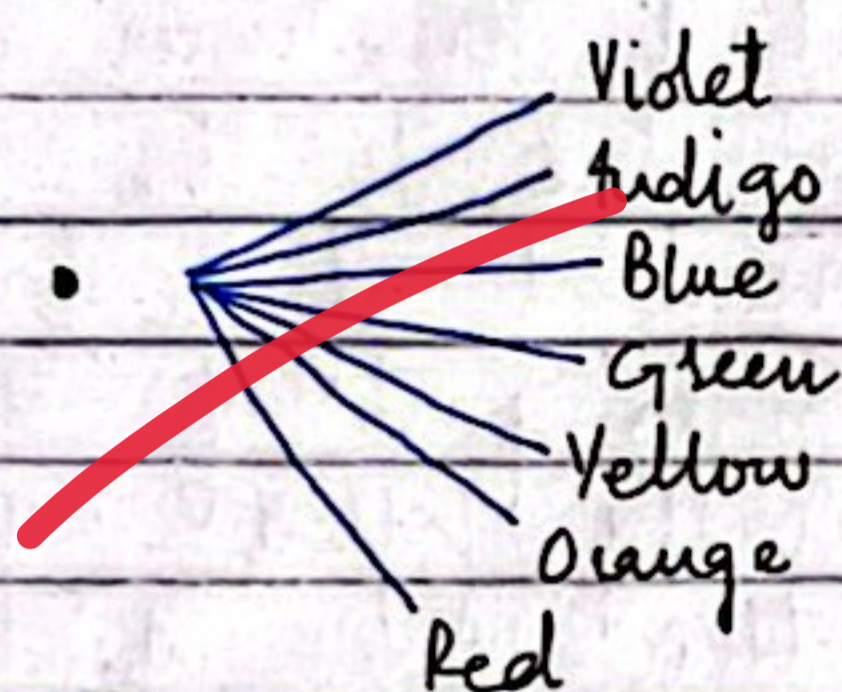 Violet
Indigo
Blue
Green
Yellow
Orange
Red